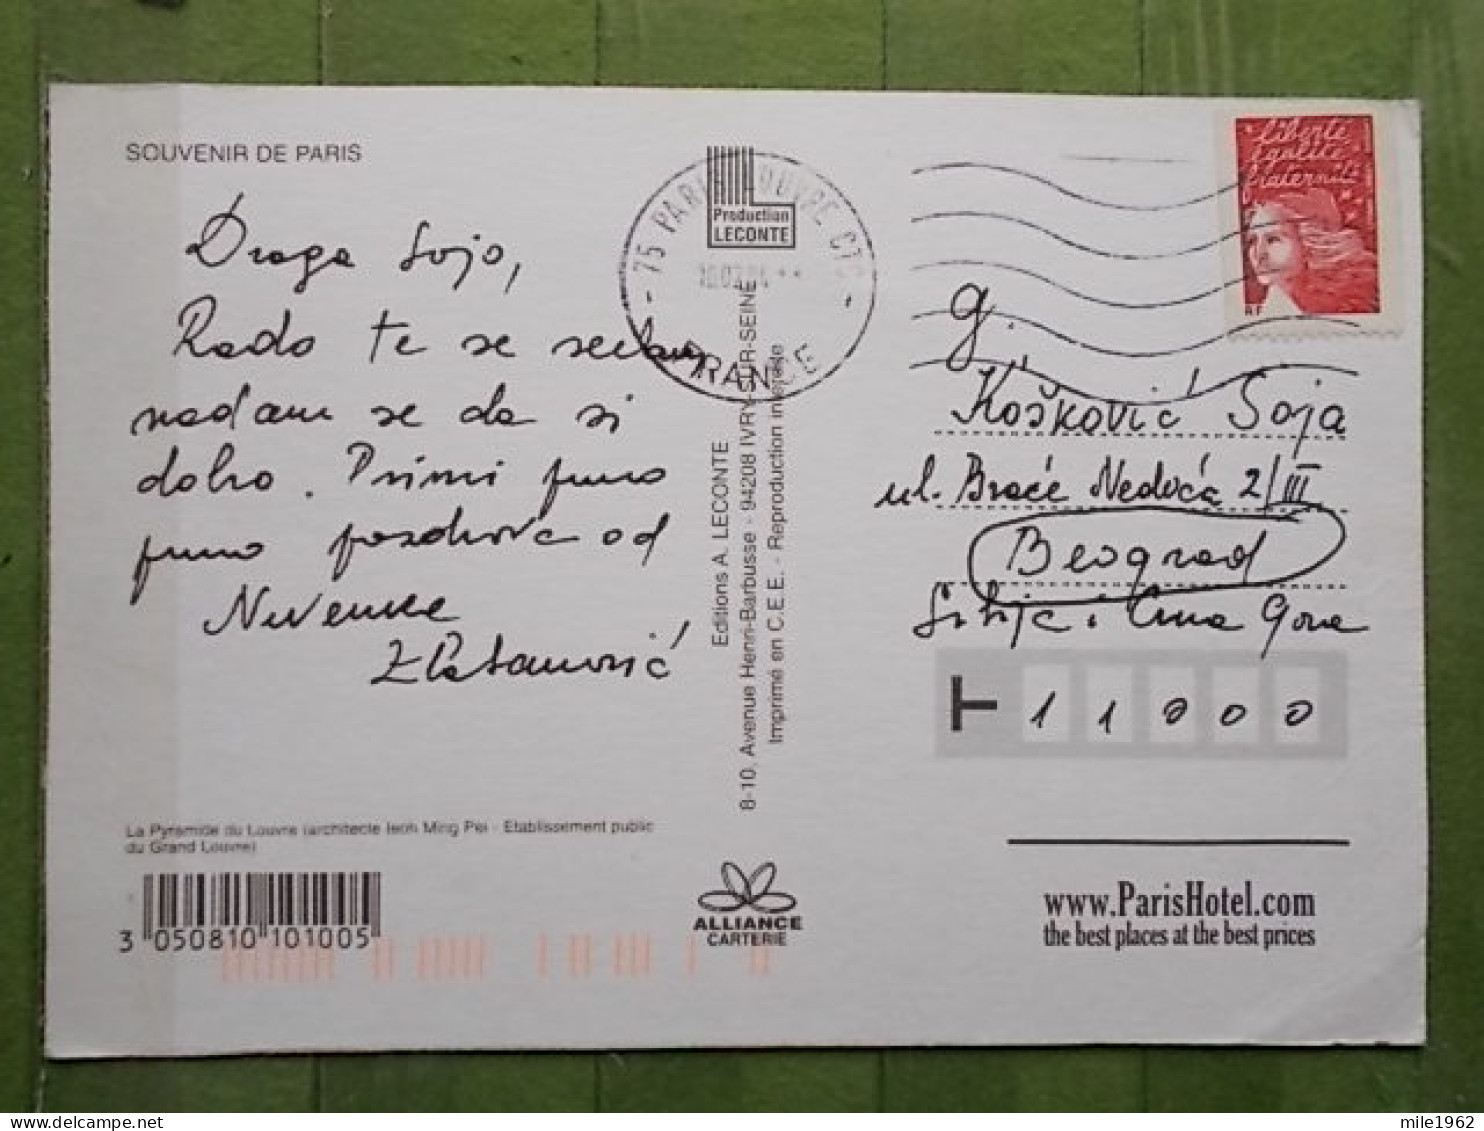 SOUVENIR DE PARIS
Draga Sojo,
Rado te se sećam
nadam se da si
dobro. Primi puno
puno pozdrava od
Nevenke
Zlatanović
La Pyramide du Louvre (architecte Ieoh Ming Pei - Etablissement public
du Grand Louvre)
3 050810 101005
Production
LECONTE
75 PARIS LOUVRE CT
FRANCE
Editions A. LECONTE
8-10, Avenue Henri-Barbusse - 94208 IVRY-SUR-SEINE
Imprimé en C.E.E. - Reproduction interdite
ALLIANCE
CARTERIE
liberté
égalité
fraternité
RF
g.
Košković Soja
ul. Braće Nedića 2/III
Beograd
Srbija i Crna Gora
T 11000
www.ParisHotel.com
the best places at the best prices
mile1962